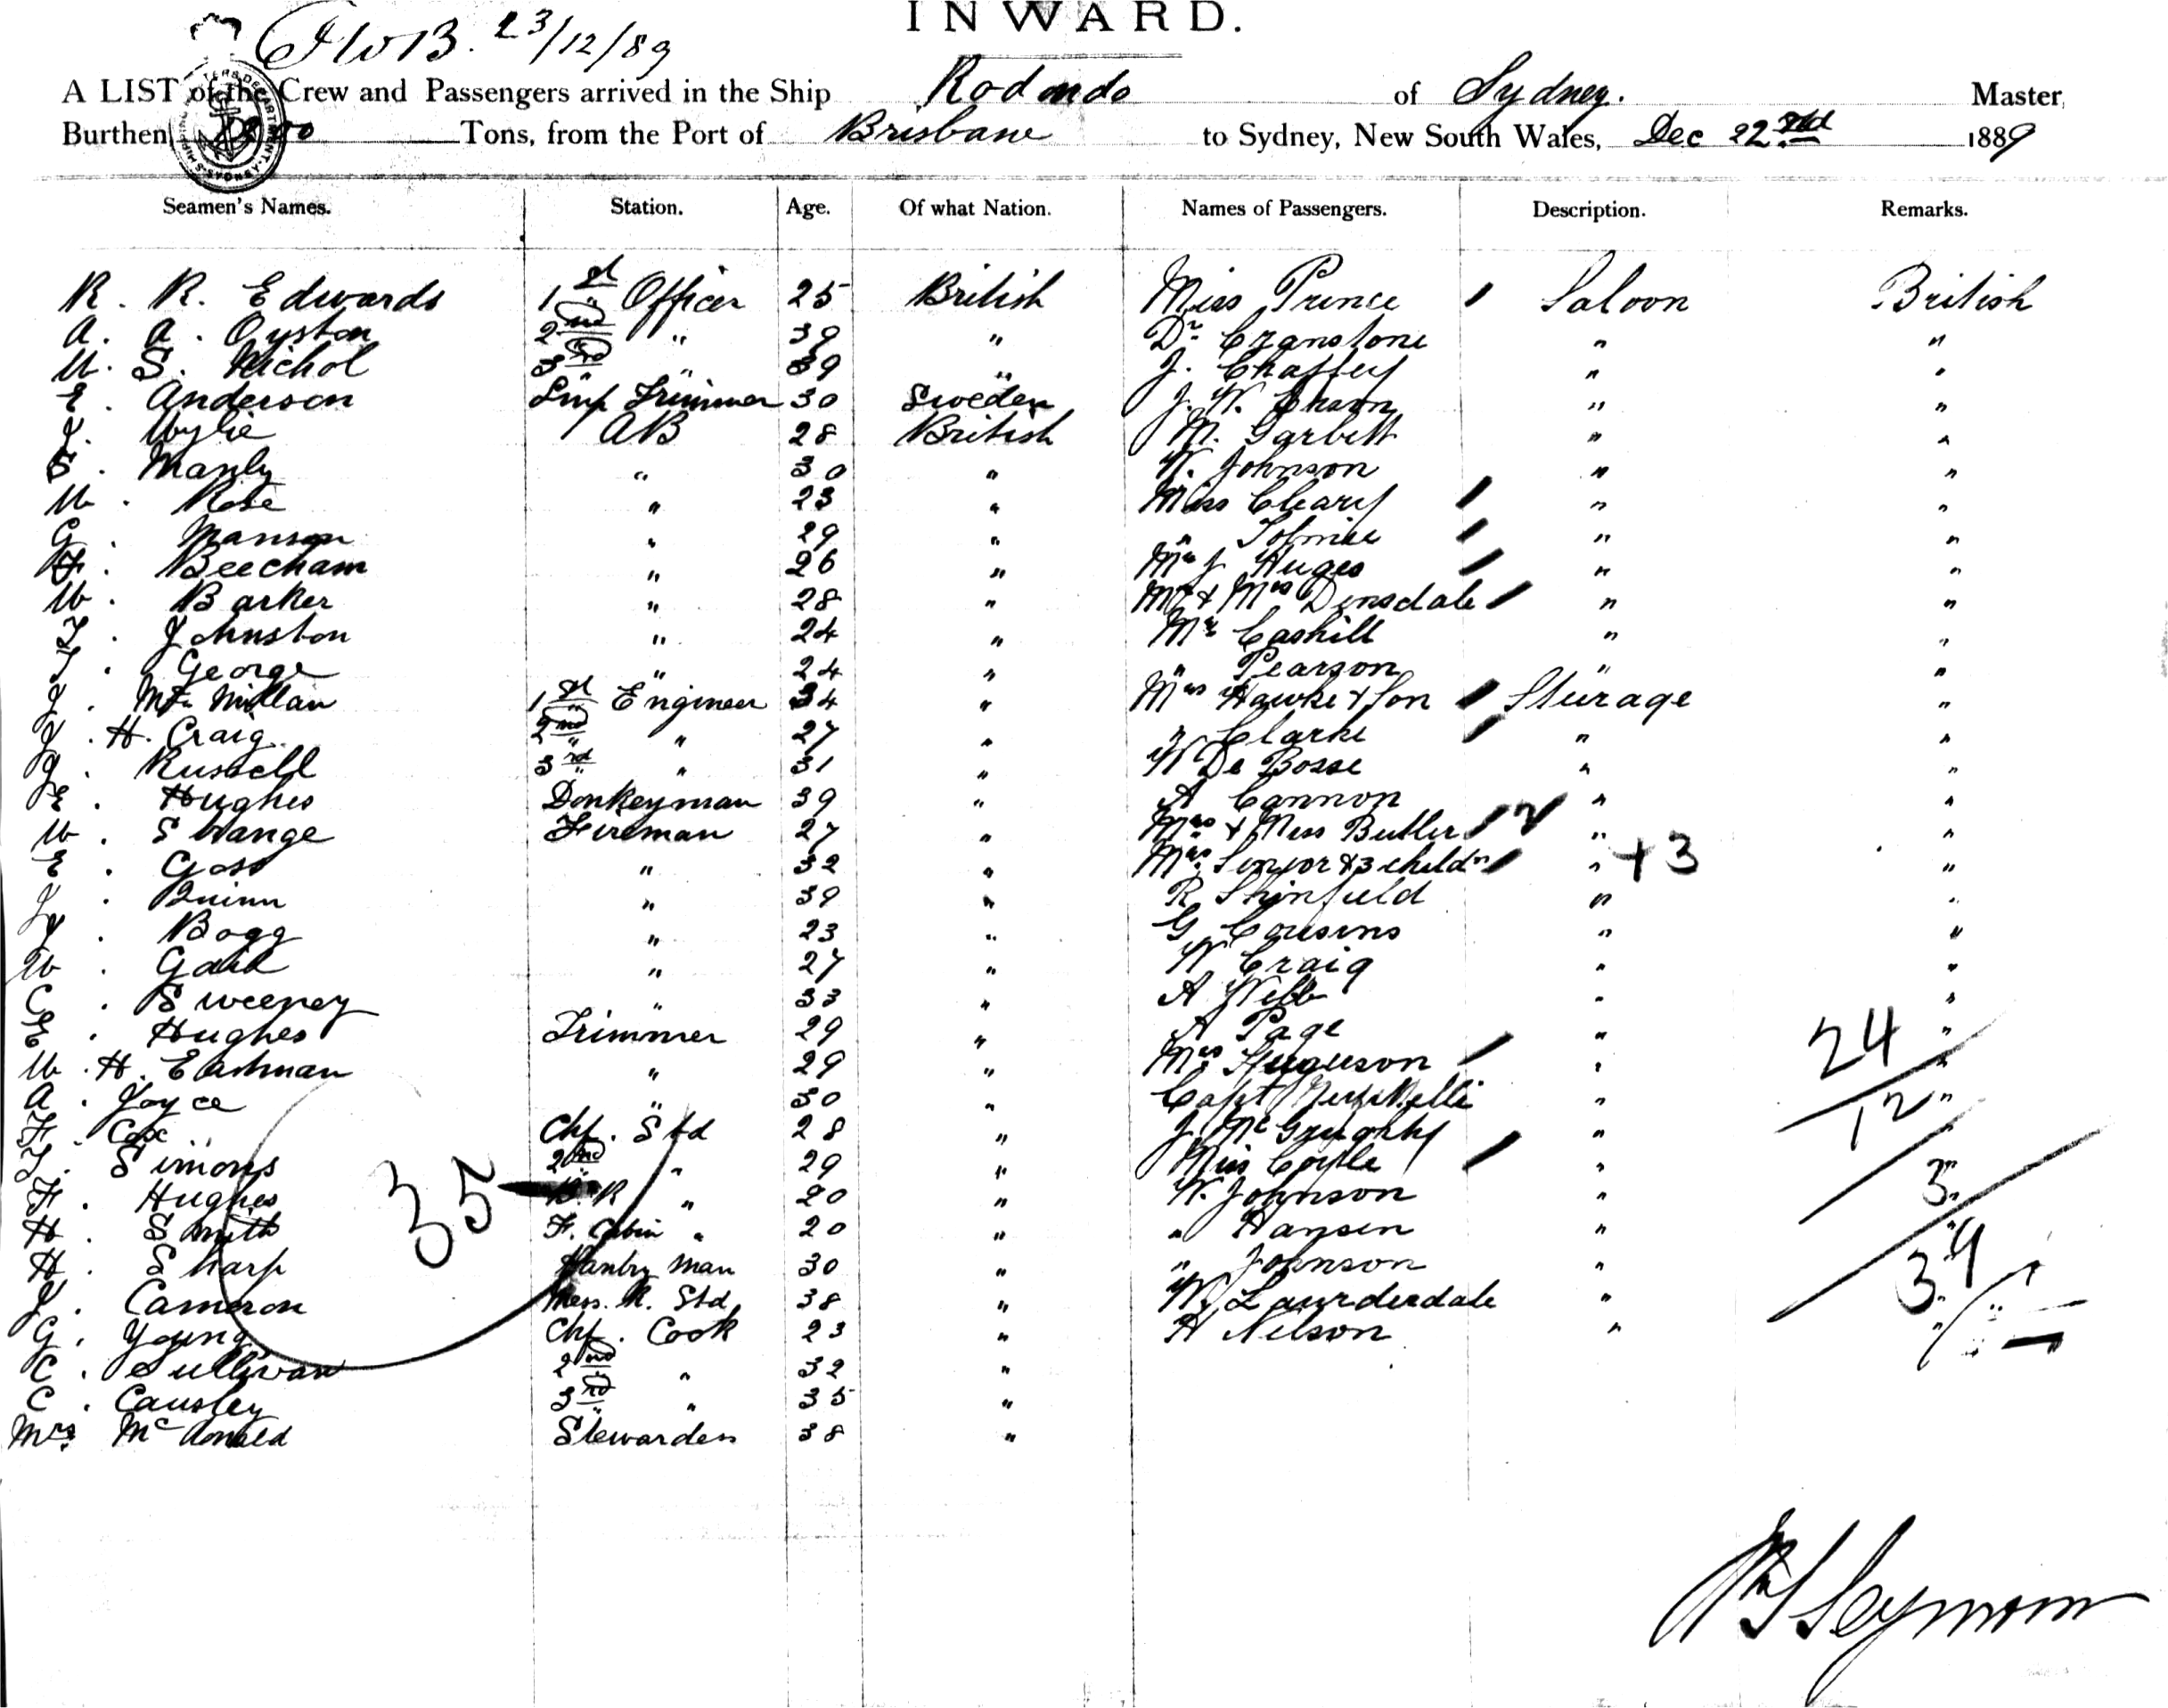 INWARD.
23/12/89
A LIST of the Crew and Passengers arrived in the Ship Rodondo of Sydney. Master,
Burthen Tons, from the Port of Brisbane to Sydney, New South Wales, Dec 22nd 1889
Seamen's Names. Station. Age. Of what Nation. Names of Passengers. Description. Remarks.
R. R. Edwards 1st Officer 25 British Miss Prince Saloon British
A. A. Oyston 2nd " 39 " Dr Cranstone " "
W. S. Nichol 3rd " 39 " J. Chaffey " "
E. Anderson Lmp Trimmer 30 Sweden J. W. " "
J. Wylie AB 28 British M. Garbett " "
S. Manly " 30 " W. Johnson " "
W. Rose " 23 " Miss Cleary " "
G. Manson " 29 " " Tolmie " "
Beecham " 26 " Huges " "
W. Barker " 28 " Mr & Mrs Dinsdale " "
T. Johnston " 24 " Mr Caskill " "
T. George " 24 " " Pearson " "
J. McMillan 1st Engineer 34 " Mrs Hawke & Son Sturage "
J. H. Craig 2nd " 27 " " Clarke " "
J. Russell 3rd " 31 " W De Bosse " "
E. Hughes Donkeyman 39 " A Cannon " "
W. Strange Fireman 27 " Mrs & Miss Butler 2 " "
E. Goss " 32 " Mrs Senior & 3 childn " + 3 "
J. Quinn " 39 " R Shinfield " "
J. Bogg " 23 " G Cousins " "
W. " 27 " W Craig " "
C. Sweeney " 33 " A Webb " "
E. Hughes Trimmer 29 " A Page " "
W. H. Eastman " 29 " Mrs Ferguson " 24 "
A. Joyce " 30 " Capt " 12 "
F. Cox Chf. Std 28 " J. " "
T. Simons 2nd " 29 " Miss Coyle " "
F. Hughes " 20 " W. Johnson " 3 "
H. Smith F. Cabin " 20 " " Hansen " "
H. Sharp Pantry man 30 " " Johnson " 39 "
J. Cameron Mess. R. Std 38 " W. Laurderdale " "
G. Young Chf. Cook 23 " H Nelson " "
C. Sullivan 2nd " 32 "
C. Causley 3rd " 35 "
Mrs McDonald Stewardess 38 "
35
Seymour